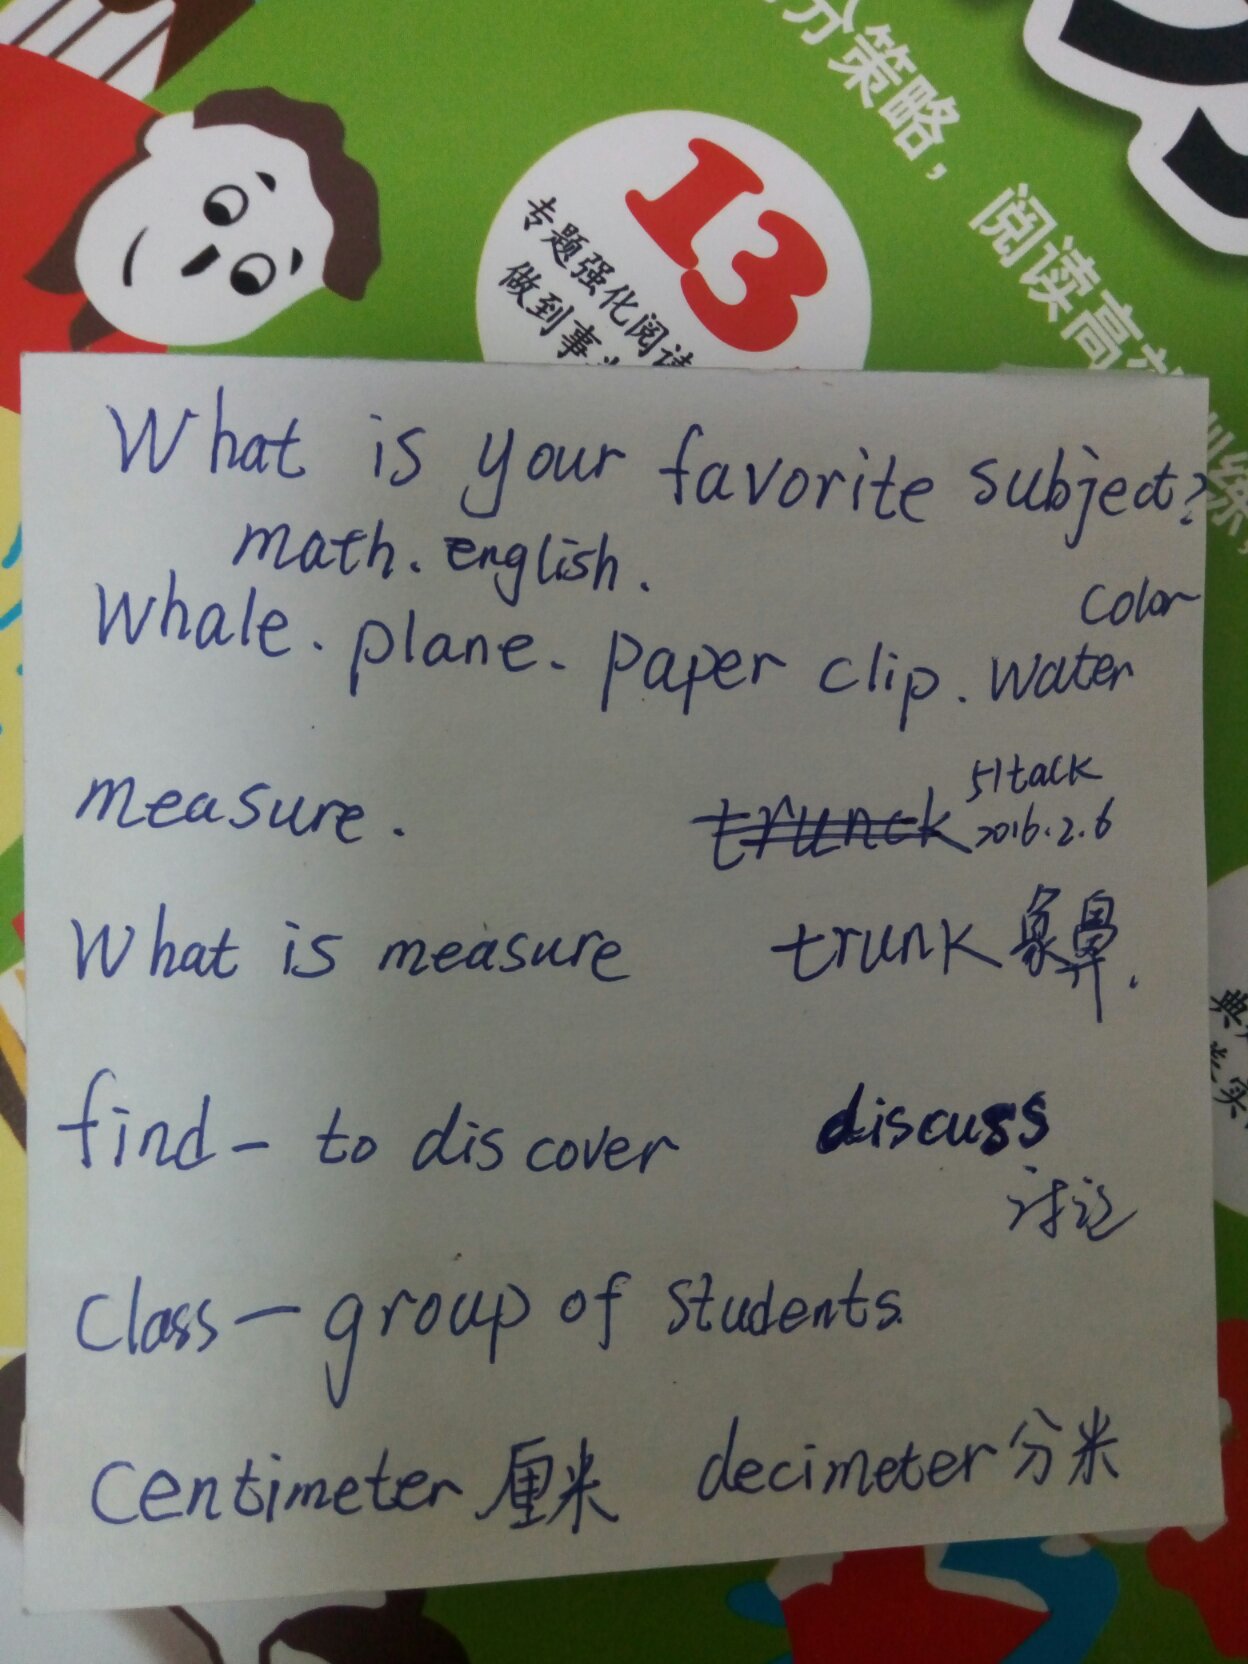 分策略,阅读高
13
专题强化阅读
做到事
What is your favorite subject?
math. english.
color
Whale. plane. paper clip. water
measure.
51talk
trunck 2016.2.6
What is measure
trunk 象鼻.
find - to discover
discuss
讨论
class - group of students.
centimeter 厘米 decimeter 分米